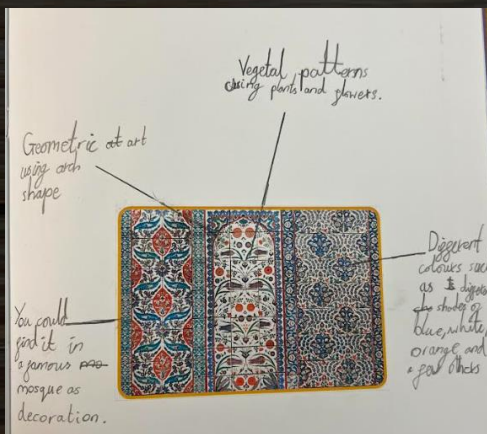 Vegetal patterns
using plants and flowers.
Geometric art
using arch
shape
Different
colours such
as
shades of
blue, white,
orange, and
a few others
You could
find it in
a famous
mosque as
decoration.